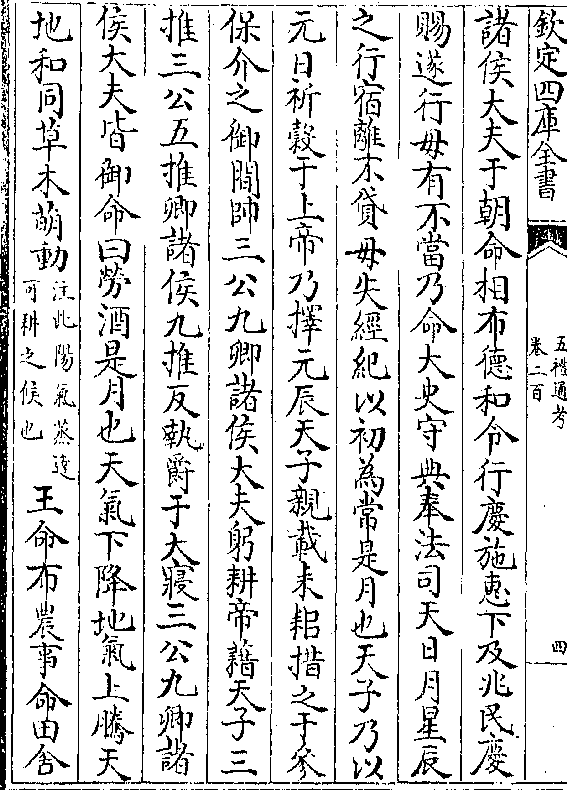 欽定四庫全書
五禮通考
卷二百
四
諸侯大夫于朝命相布德和令行慶施惠下及兆民慶
賜遂行毋有不當乃命大史守典奉法司天日月星辰
之行宿離不貸毋失經紀以初為常是月也天子乃以
元日祈穀于上帝乃擇元辰天子親載耒耜措之于參
保介之御間帥三公九卿諸侯大夫躬耕帝藉天子三
推三公五推卿諸侯九推反執爵于大寢三公九卿諸
侯大夫皆御命曰勞酒是月也天氣下降地氣上騰天
地和同草木萌動注此陽氣蒸達可耕之候也王命布農事命田舍